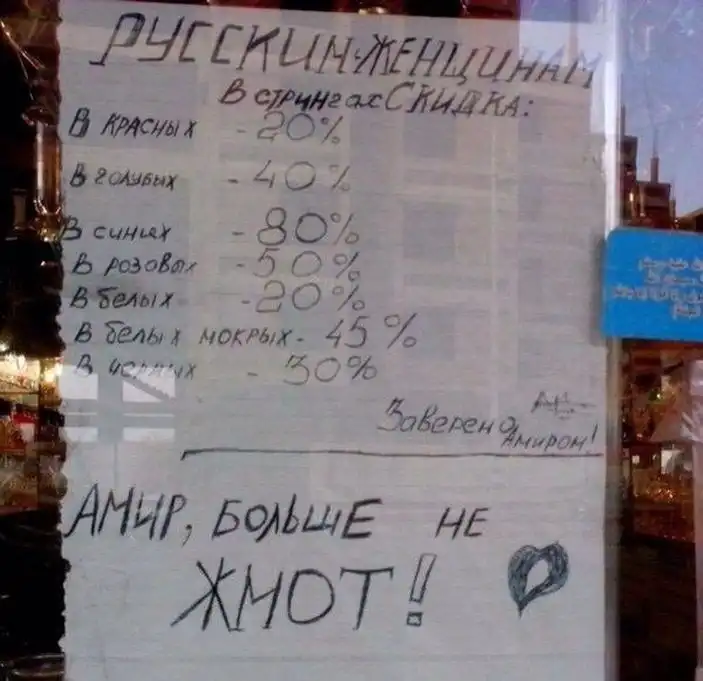 РУССКИМ ЖЕНЩИНАМ
В стрингах СКИДКА:
В КРАСНЫХ - 20%
В голубых - 40%
В синих - 80%
В розовых - 50%
В белых - 20%
В белых мокрых - 45%
В черных - 30%
Заверено
Амиром!
АМИР, БОЛЬШЕ НЕ
ЖМОТ!